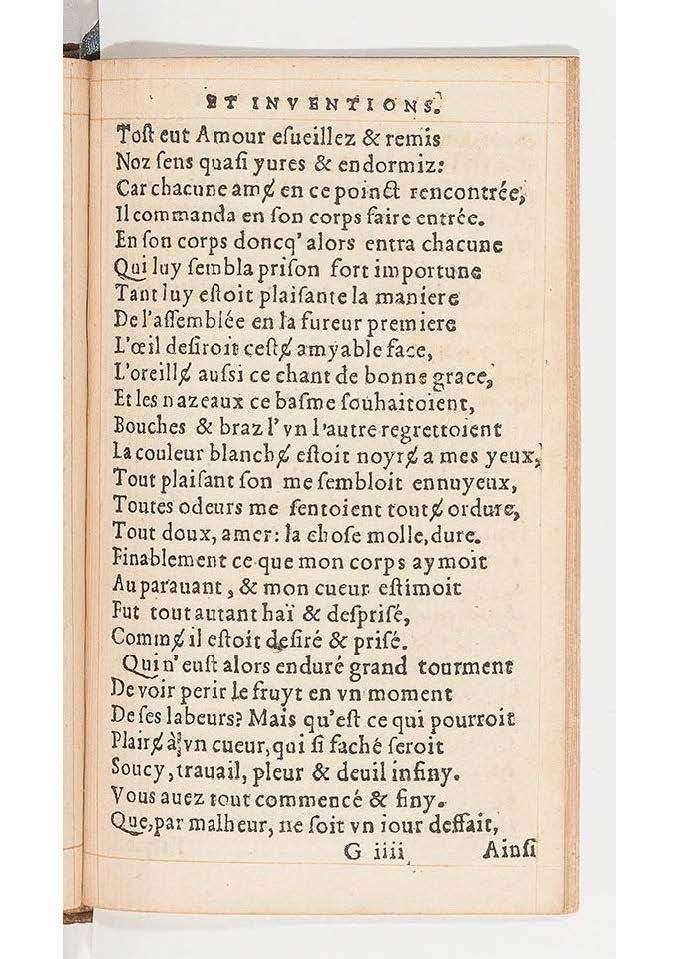 ET INVENTIONS.
Toſt eut Amour eſueillez & remis
Noz ſens quaſi yures & endormiz:
Car chacune amɇ en ce poinct rencontrée,
Il commanda en ſon corps faire entrée.
En ſon corps doncq' alors entra chacune
Qui luy ſembla priſon fort importune
Tant luy eſtoit plaiſante la maniere
De l'aſſemblée en la fureur premiere
L'œil deſiroit ceſtɇ amyable face,
L'oreillɇ auſsi ce chant de bonne grace,
Et les nazeaux ce baſme ſouhaitoient,
Bouches & braz l'vn l'autre regrettoient
La couleur blanchɇ eſtoit noyrɇ a mes yeux,
Tout plaiſant ſon me ſembloit ennuyeux,
Toutes odeurs me ſentoient toutɇ ordure,
Tout doux, amer: la choſe molle, dure.
Finablement ce que mon corps aymoit
Au parauant, & mon cueur eſtimoit
Fut tout autant haï & deſpriſé,
Commɇ il eſtoit deſiré & priſé.
Qui n'euſt alors enduré grand tourment
De voir perir le fruyt en vn moment
De ſes labeurs? Mais qu'eſt ce qui pourroit
Plairɇ à vn cueur, qui ſi faché ſeroit
Soucy, trauail, pleur & deuil infiny.
Vous auez tout commencé & finy.
Que, par malheur, ne ſoit vn iour deffait,
G iiii Ainſi